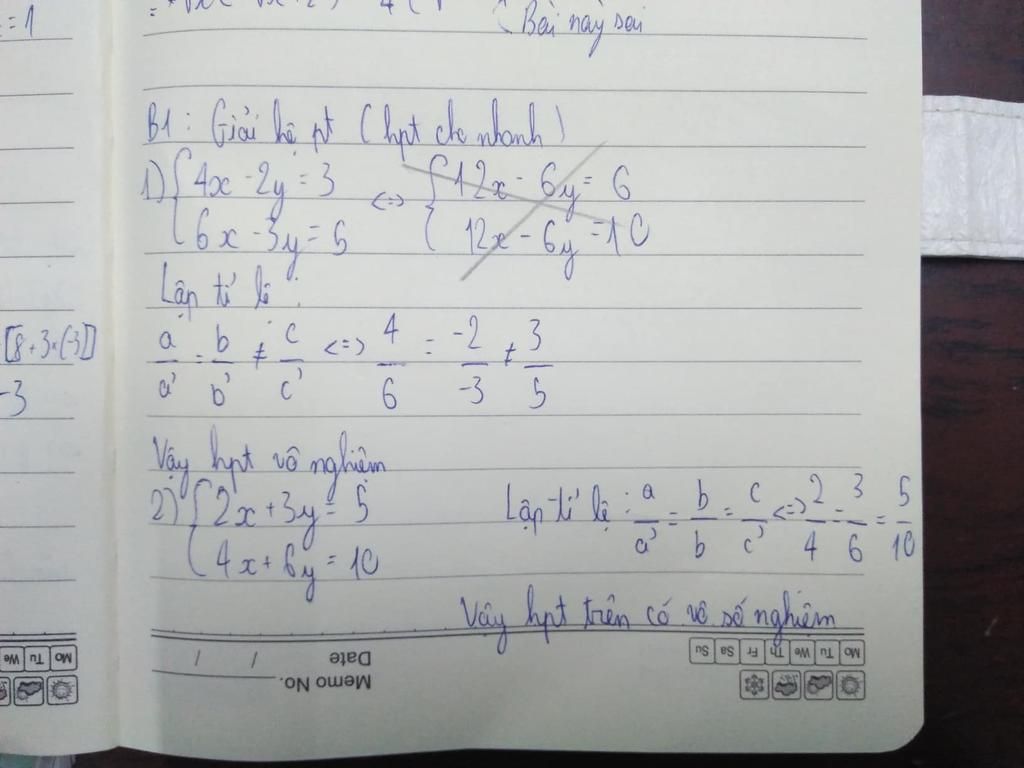 = 1
Bài này sai
B1: Giải hệ pt (hpt cho nhanh)
1) { 4x - 2y = 3 <=> { 12x - 6y = 6
6x - 3y = 5 12x - 6y = 10
Lập tỉ lệ :
a/a' = b/b' ≠ c/c' <=> 4/6 = -2/-3 ≠ 3/5
[8 + 3×(-3)]
-3
Vậy hpt vô nghiệm
2) { 2x + 3y = 5
4x + 6y = 10
Lập tỉ lệ : a/a' = b/b = c/c' <=> 2/4 = 3/6 = 5/10
Vậy hpt trên có vô số nghiệm
Memo No.
Date / /
Mo Tu We Th Fr Sa Su
Mo Tu We